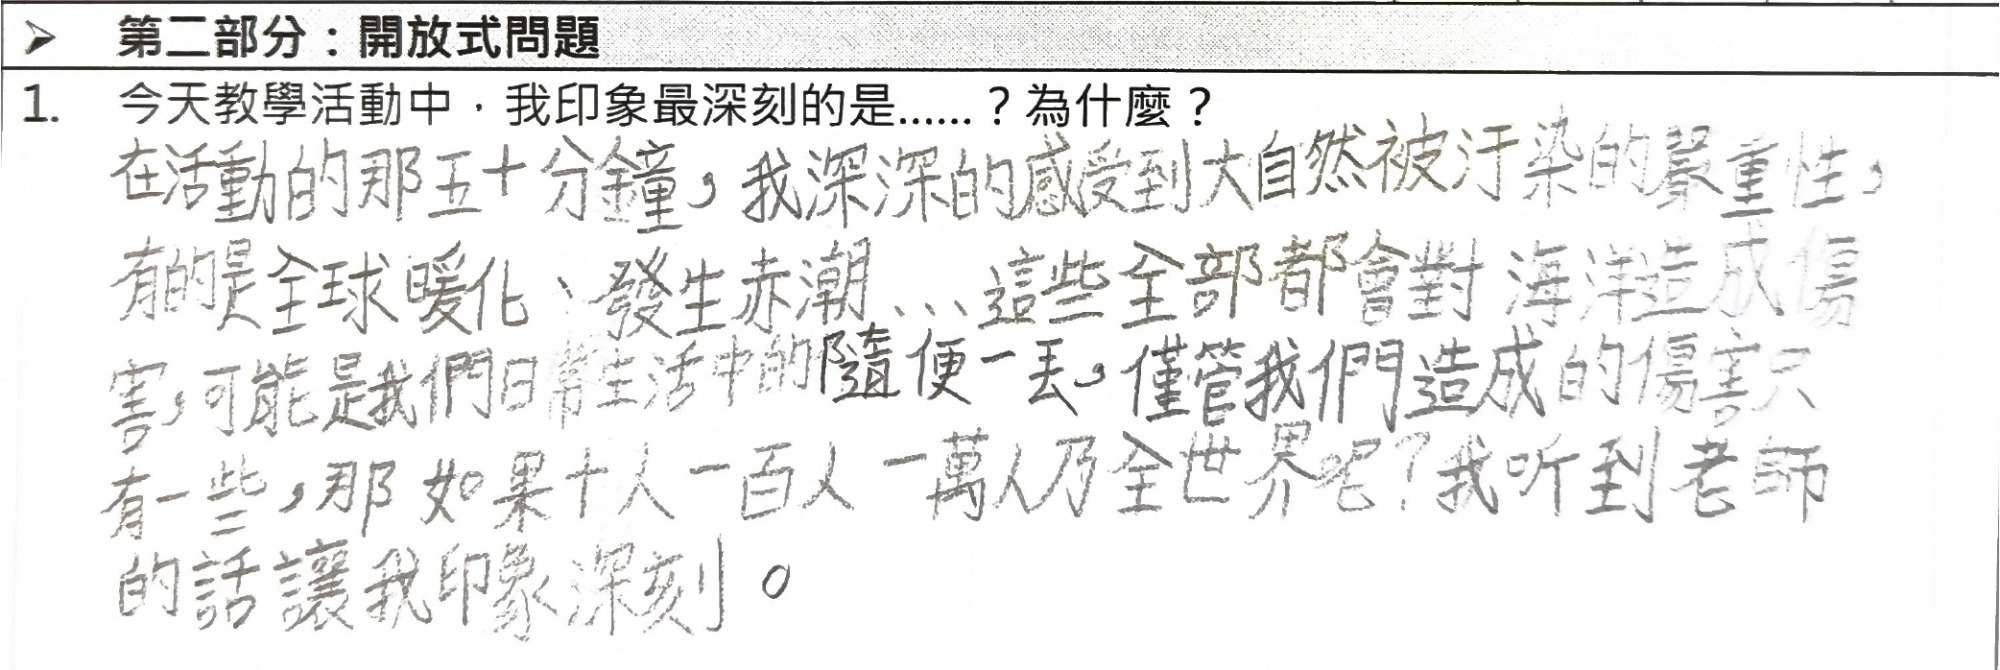 ➢ 第二部分：開放式問題
1. 今天教學活動中，我印象最深刻的是......？為什麼？
在活動的那五十分鐘，我深深的感受到大自然被汙染的嚴重性，
有的是全球暖化、發生赤潮、、、這些全部都會對海洋造成傷
害，可能是我們日常生活中的隨便一丟，僅管我們造成的傷害只
有一些，那如果十人一百人一萬人乃全世界呢？我听到老師
的話讓我印象深刻。